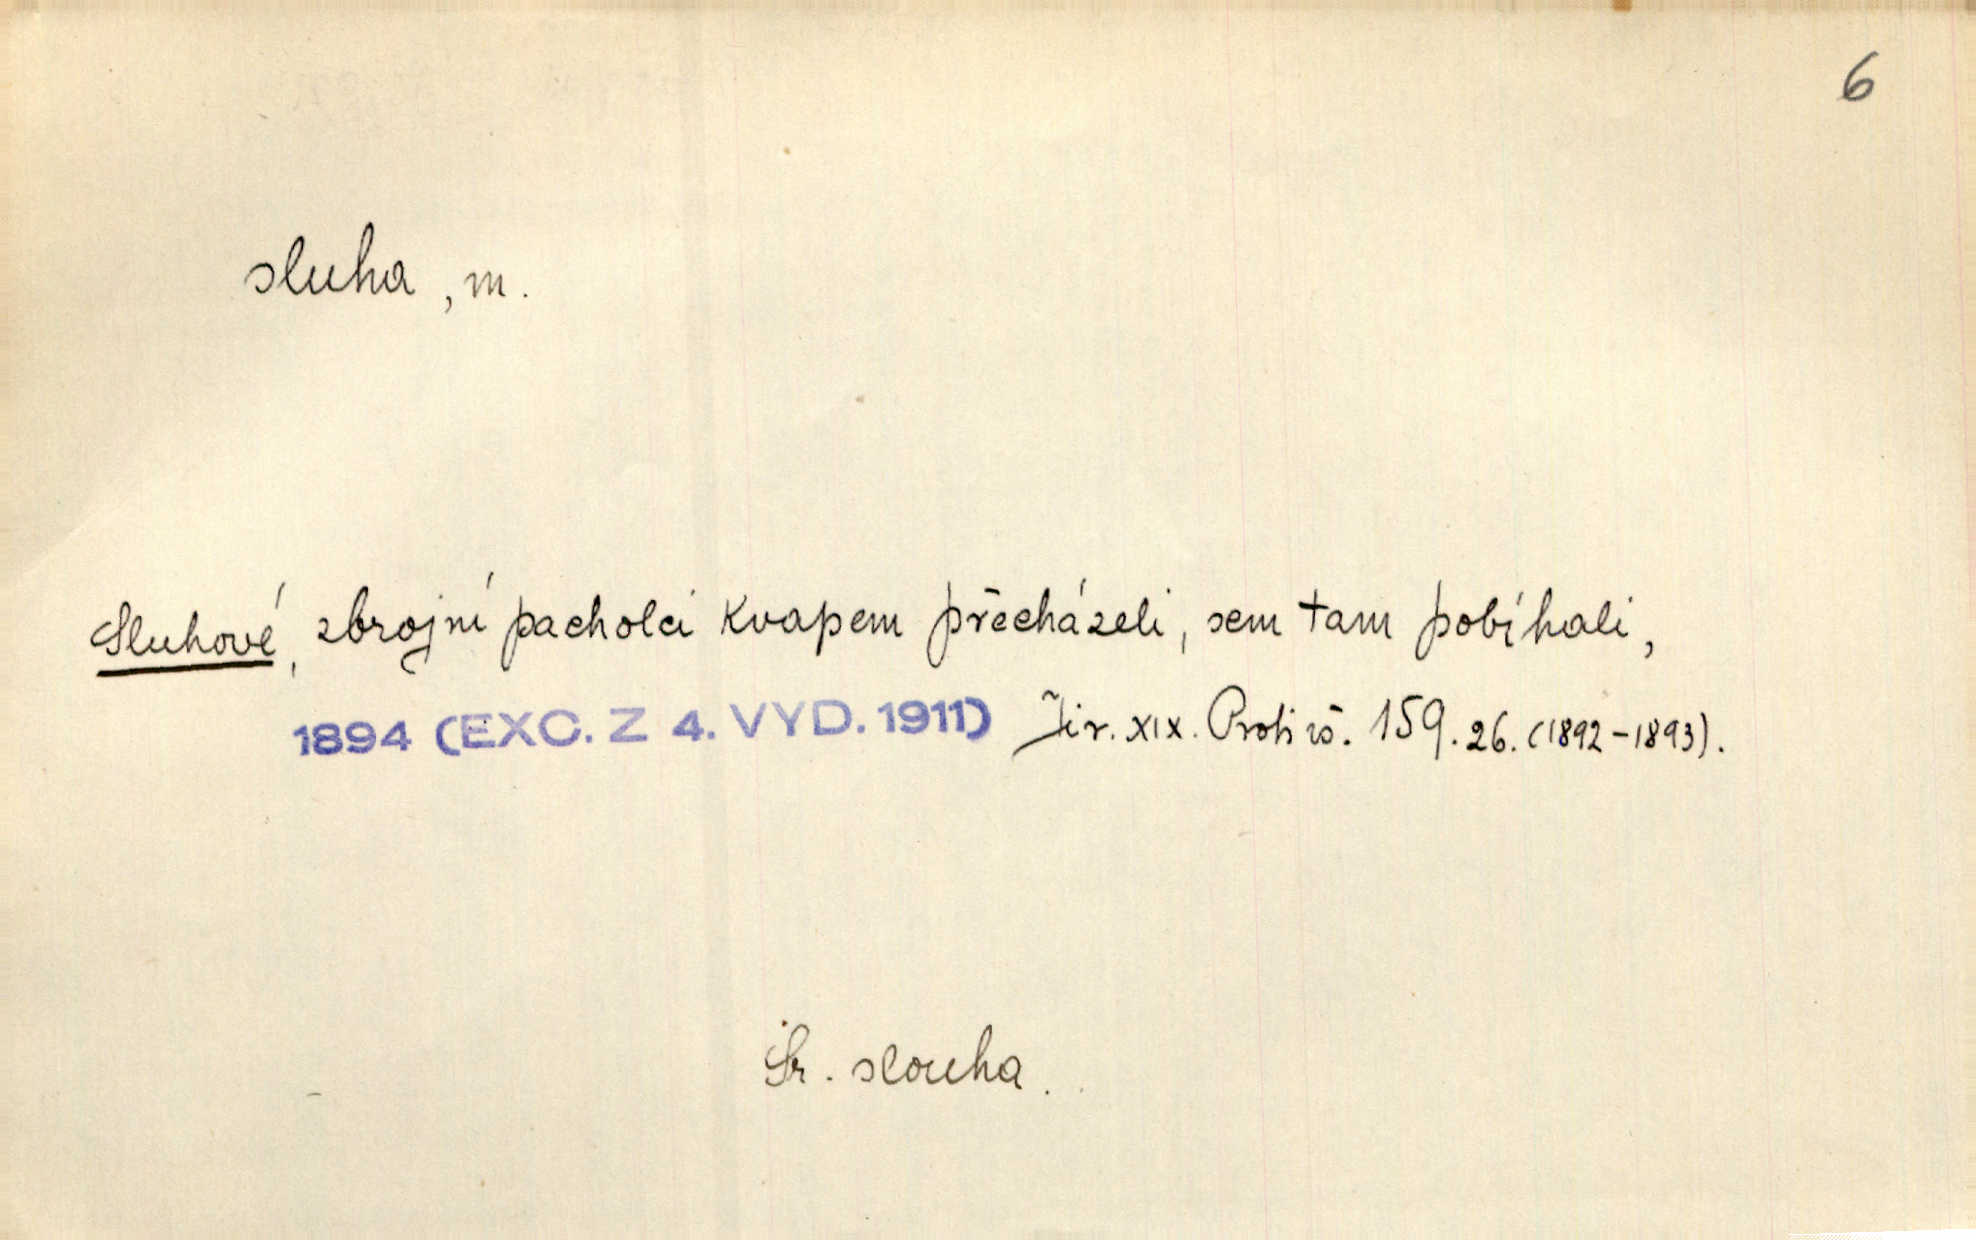 6
sluha, m.
Sluhové, zbrojní pacholci kvapem přecházeli, sem tam pobíhali,
1894 (EXC. Z 4. VYD. 1911) Jir. XIX. Proti vš. 159. 26. (1892-1893).
Sr. slouha.